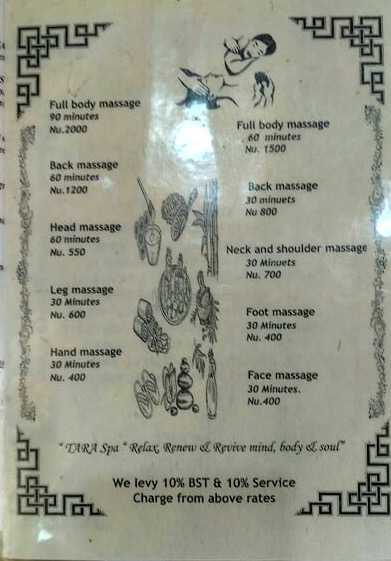 Full body massage
90 minutes
Nu.2000
Back massage
60 minutes
Nu.1200
Head massage
60 minutes
Nu. 550
Leg massage
30 Minutes
Nu. 600
Hand massage
30 Minutes
Nu. 400
Full body massage
60 minutes
Nu. 1500
Back massage
30 minuets
Nu 800
Neck and shoulder massage
30 Minuets
Nu. 700
Foot massage
30 Minutes
Nu. 400
Face massage
30 Minutes.
Nu.400
" TARA Spa " Relax, Renew & Revive mind, body & soul"
We levy 10% BST & 10% Service
Charge from above rates